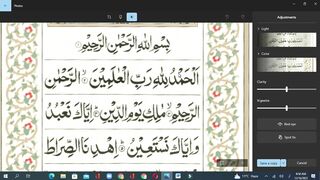 Photos
Adjustments
Light
Color
Clarity
Vignette
Red eye
Spot fix
Save a copy
بِسْمِ اللهِ الرَّحْمٰنِ الرَّحِيْمِ
اَلْحَمْدُ لِلّٰهِ رَبِّ الْعٰلَمِيْنَ ۝ الرَّحْمٰنِ
الرَّحِيْمِ ۝ مٰلِكِ يَوْمِ الدِّيْنِ ۝ اِيَّاكَ نَعْبُدُ
وَاِيَّاكَ نَسْتَعِيْنُ ۝ اِهْدِنَا الصِّرَاطَ